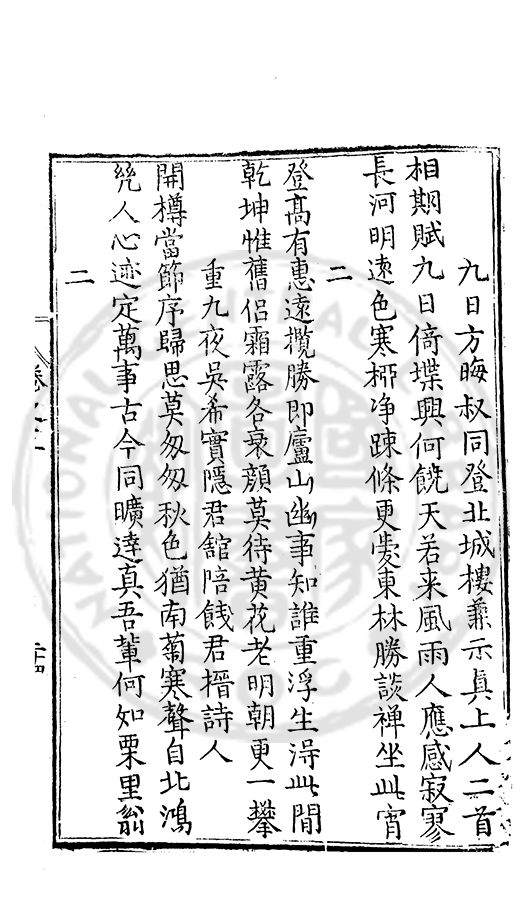 九日方晦叔同登北城樓兼示真上人二首
相期賦九日倚堞興何饒天若来風雨人應感寂寥
長河明遠色寒栁净踈條更愛東林勝談禅坐此宵
二
登髙有惠遠攬勝即廬山幽事知誰重浮生淂此閒
乾坤惟舊侣霜露各衰顔莫待黄花老明朝更一攀
重九夜吳希實隱君舘陪餞君搢詩人
開樽當節序歸思莫匆匆秋色猶南菊寒聲自北鴻
㡬人心迹定萬事古今同曠達真吾輩何如栗里翁
二
卷之二